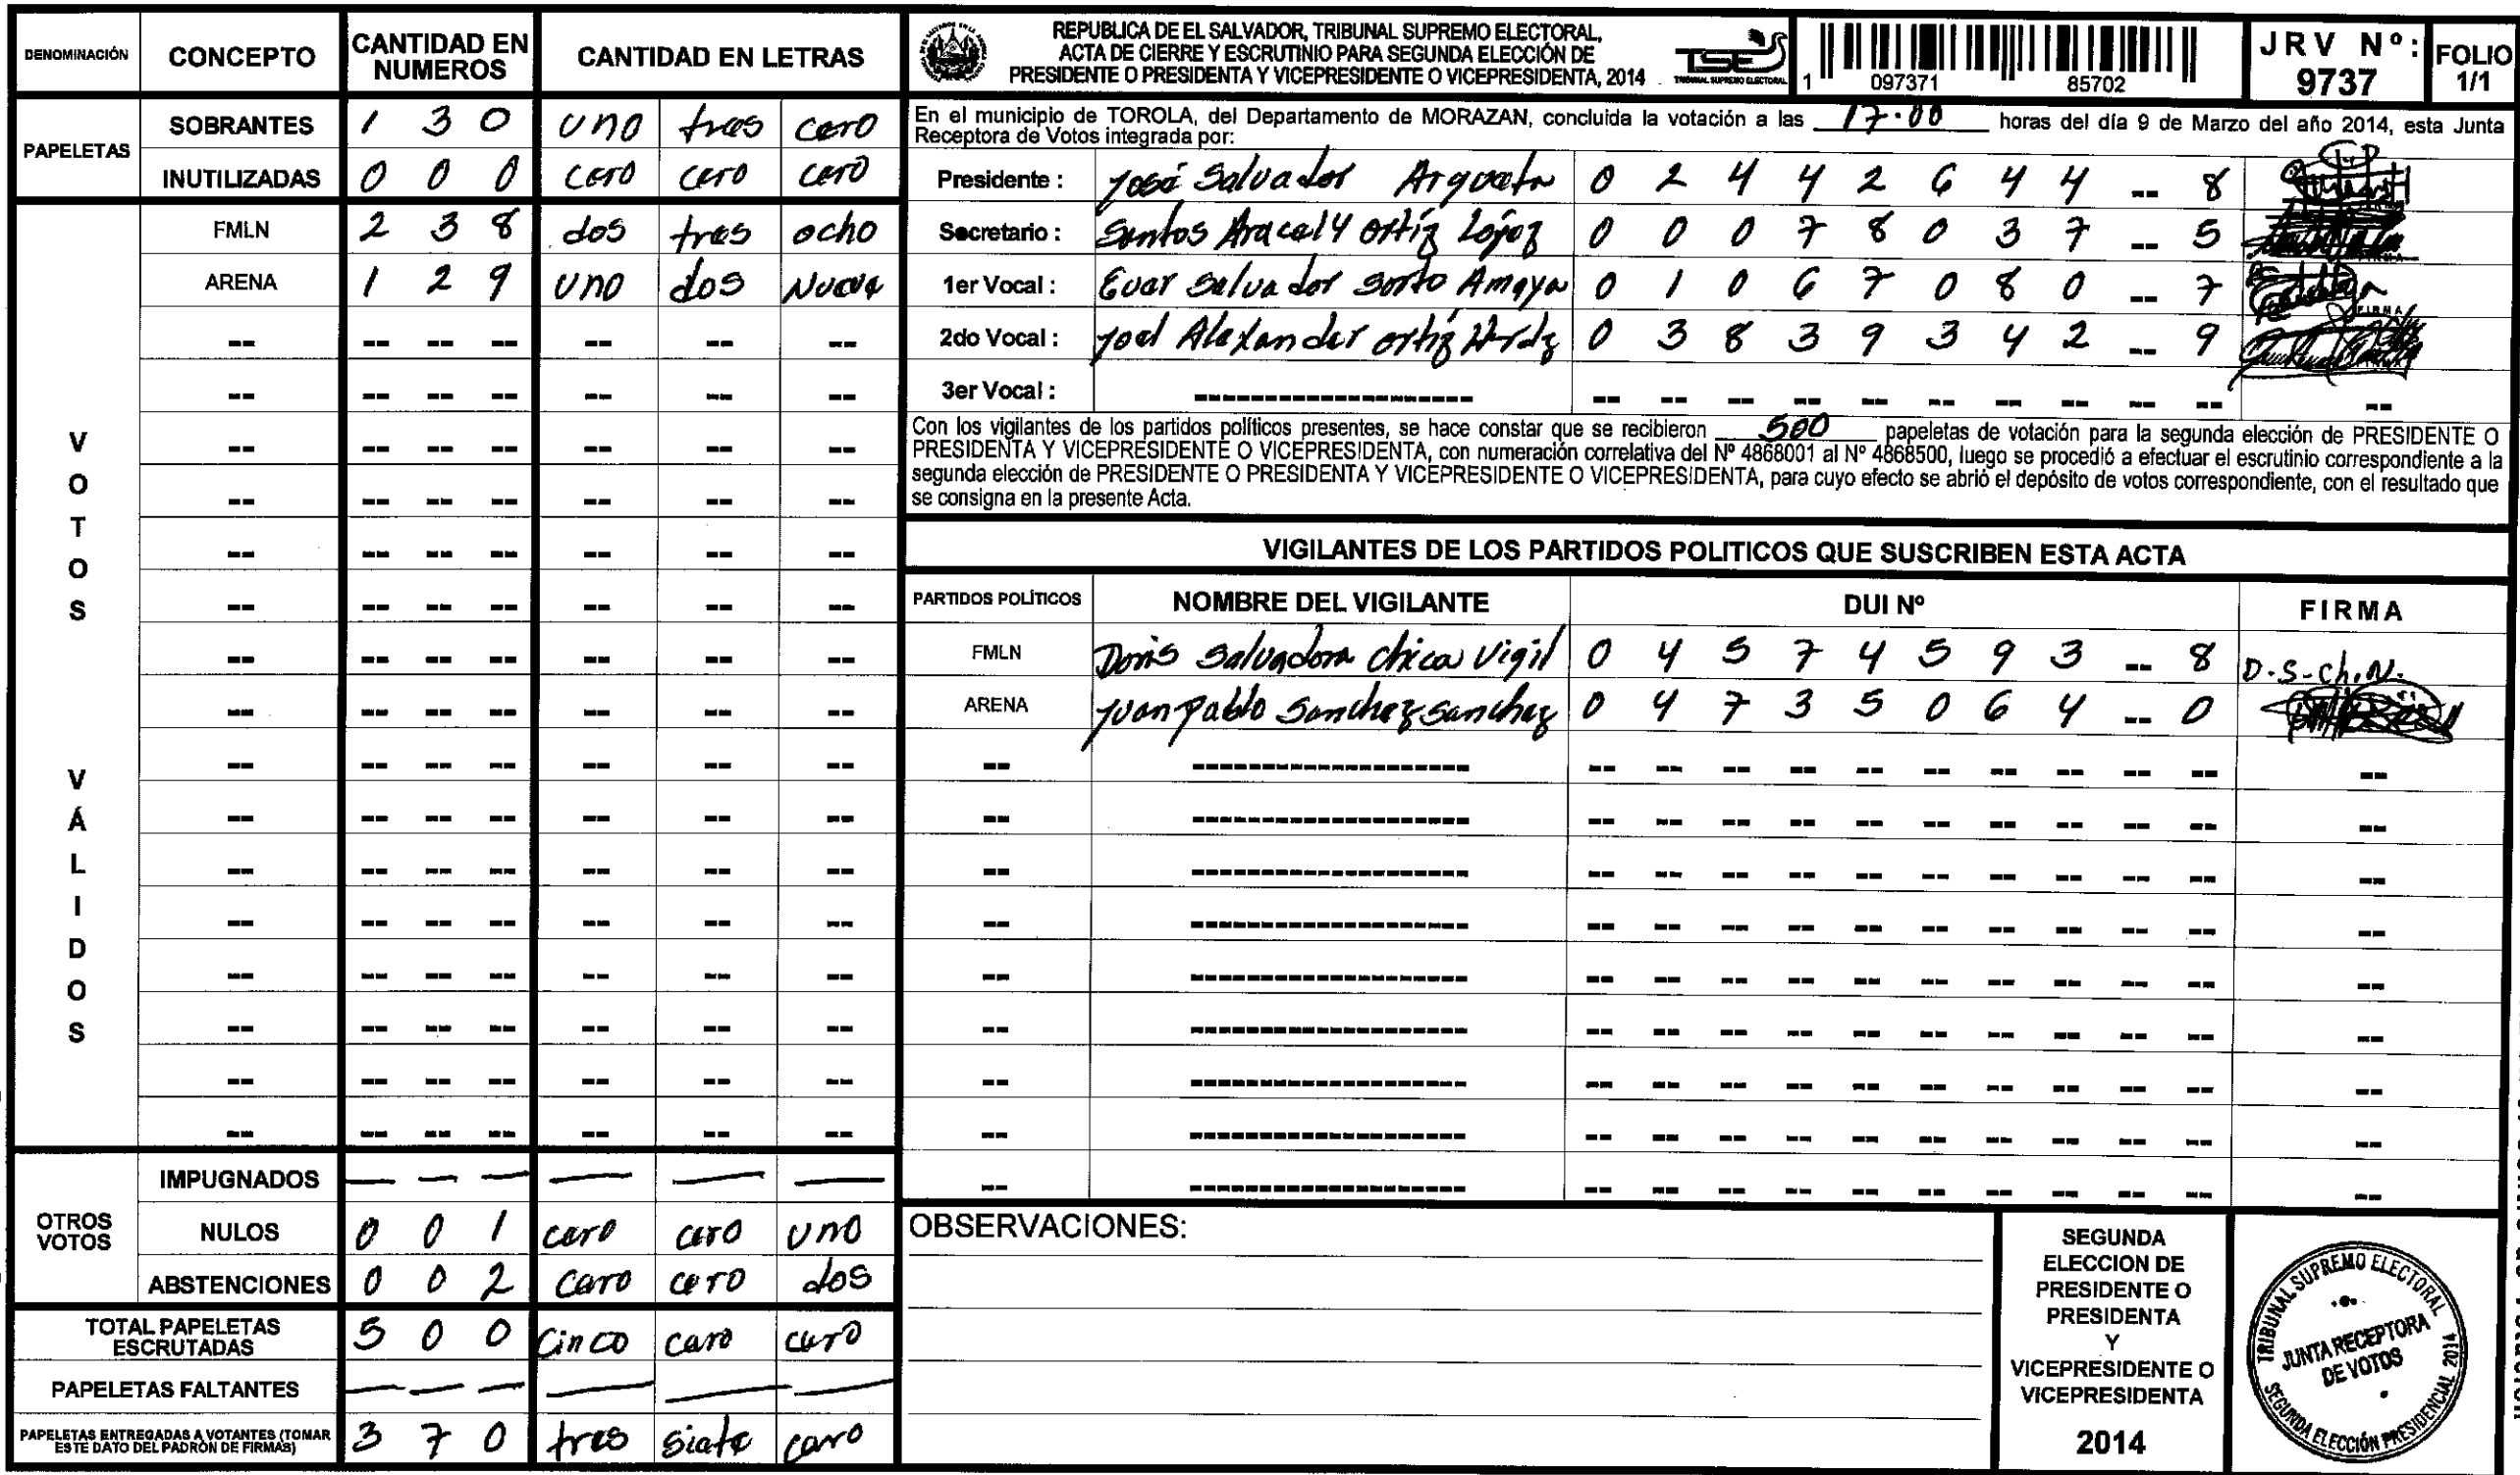 DENOMINACIÓN CONCEPTO CANTIDAD EN NUMEROS CANTIDAD EN LETRAS
PAPELETAS
SOBRANTES 1 3 0 uno tres cero
INUTILIZADAS 0 0 0 cero cero cero
VOTOS VÁLIDOS
FMLN 2 3 8 dos tres ocho
ARENA 1 2 9 uno dos Nueve
OTROS VOTOS
IMPUGNADOS — — — — — —
NULOS 0 0 1 cero cero uno
ABSTENCIONES 0 0 2 cero cero dos
TOTAL PAPELETAS ESCRUTADAS 5 0 0 Cinco cero cero
PAPELETAS FALTANTES — — — — — —
PAPELETAS ENTREGADAS A VOTANTES (TOMAR ESTE DATO DEL PADRÓN DE FIRMAS) 3 7 0 tres siete cero
REPUBLICA DE EL SALVADOR, TRIBUNAL SUPREMO ELECTORAL,
ACTA DE CIERRE Y ESCRUTINIO PARA SEGUNDA ELECCIÓN DE
PRESIDENTE O PRESIDENTA Y VICEPRESIDENTE O VICEPRESIDENTA, 2014
TSE
TRIBUNAL SUPREMO ELECTORAL
1 097371 85702
JRV Nº: 9737
FOLIO 1/1
En el municipio de TOROLA, del Departamento de MORAZAN, concluida la votación a las 17:00 horas del día 9 de Marzo del año 2014, esta Junta
Receptora de Votos integrada por:
Presidente : José Salvador Argueta 0 2 4 4 2 6 4 4 -- 8
Secretario : Santos Aracely Ortíz López 0 0 0 7 8 0 3 7 -- 5
1er Vocal : Evar Salvador Sorto Amaya 0 1 0 6 7 0 8 0 -- 7
2do Vocal : Joel Alexander Ortíz Hrdz 0 3 8 3 9 3 4 2 -- 9
3er Vocal :
Con los vigilantes de los partidos políticos presentes, se hace constar que se recibieron 500 papeletas de votación para la segunda elección de PRESIDENTE O
PRESIDENTA Y VICEPRESIDENTE O VICEPRESIDENTA, con numeración correlativa del Nº 4868001 al Nº 4868500, luego se procedió a efectuar el escrutinio correspondiente a la
segunda elección de PRESIDENTE O PRESIDENTA Y VICEPRESIDENTE O VICEPRESIDENTA, para cuyo efecto se abrió el depósito de votos correspondiente, con el resultado que
se consigna en la presente Acta.
VIGILANTES DE LOS PARTIDOS POLITICOS QUE SUSCRIBEN ESTA ACTA
PARTIDOS POLÍTICOS NOMBRE DEL VIGILANTE DUI Nº FIRMA
FMLN Doris Salvadora Chica Vigil 0 4 5 7 4 5 9 3 -- 8 D.S-Ch.N.
ARENA Juan Pablo Sanchez Sanchez 0 4 7 3 5 0 6 4 -- 0
OBSERVACIONES:
SEGUNDA
ELECCION DE
PRESIDENTE O
PRESIDENTA
Y
VICEPRESIDENTE O
VICEPRESIDENTA
2014
TRIBUNAL SUPREMO ELECTORAL
JUNTA RECEPTORA
DE VOTOS
SEGUNDA ELECCIÓN PRESIDENCIAL 2014